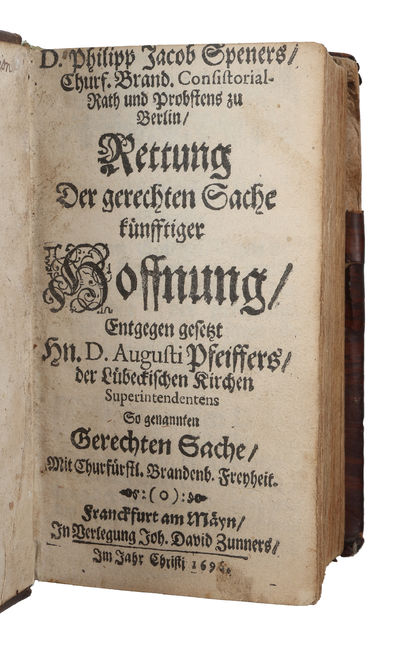 D. Philipp Jacob Speners/
Churf. Brand. Consistorial-
Rath und Probstens zu
Berlin/
Rettung
Der gerechten Sache
künfftiger
Hoffnung/
Entgegen gesetzt
Hn. D. Augusti Pfeiffers/
der Lübeckischen Kirchen
Superintendentens
So genannten
Gerechten Sache/
Mit Churfürstl. Brandenb. Freyheit.
:(o):
Franckfurt am Mäyn/
In Verlegung Joh. David Zunners/
Im Jahr Christi 1696.